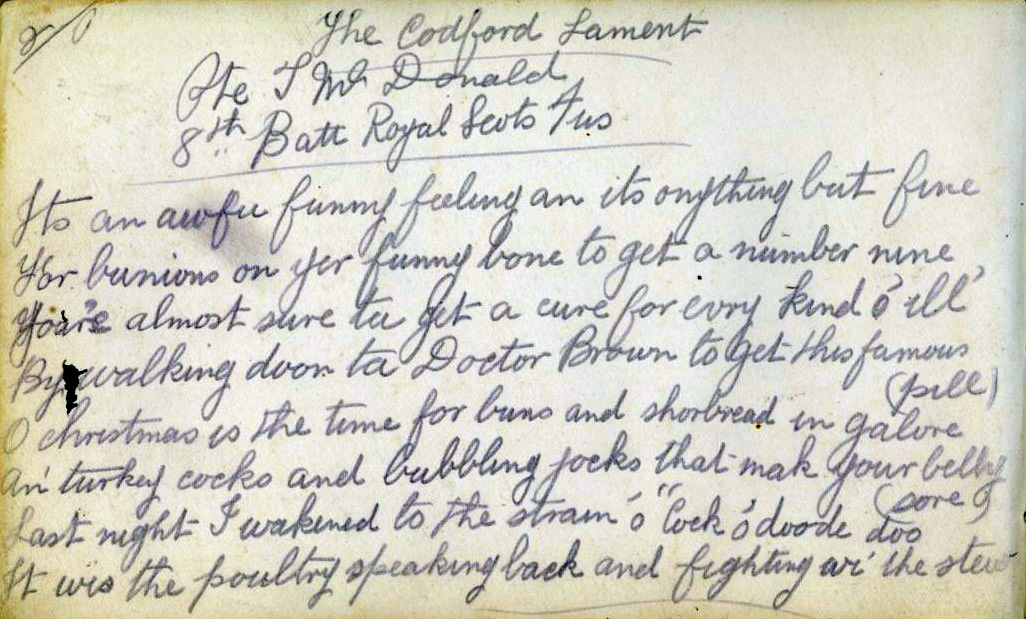 The Codford Lament
Pte T McDonald
8th Batt Royal Scots Fus
Its an awfu funny feeling an its onything but fine
For bunions on yer funny bone to get a number nine
You're almost sure ta get a cure for evry kind o' ill'
By walking doon ta Doctor Brown to get this famous
(pill)
O christmas is the time for buns and shorbread in galore
An' turkey cocks and bubbling jocks that mak your belly
(sore)
Last night I wakened to the strain o' "Cock o' doode doo
It wis the poultry speaking back and fighting wi' the stew